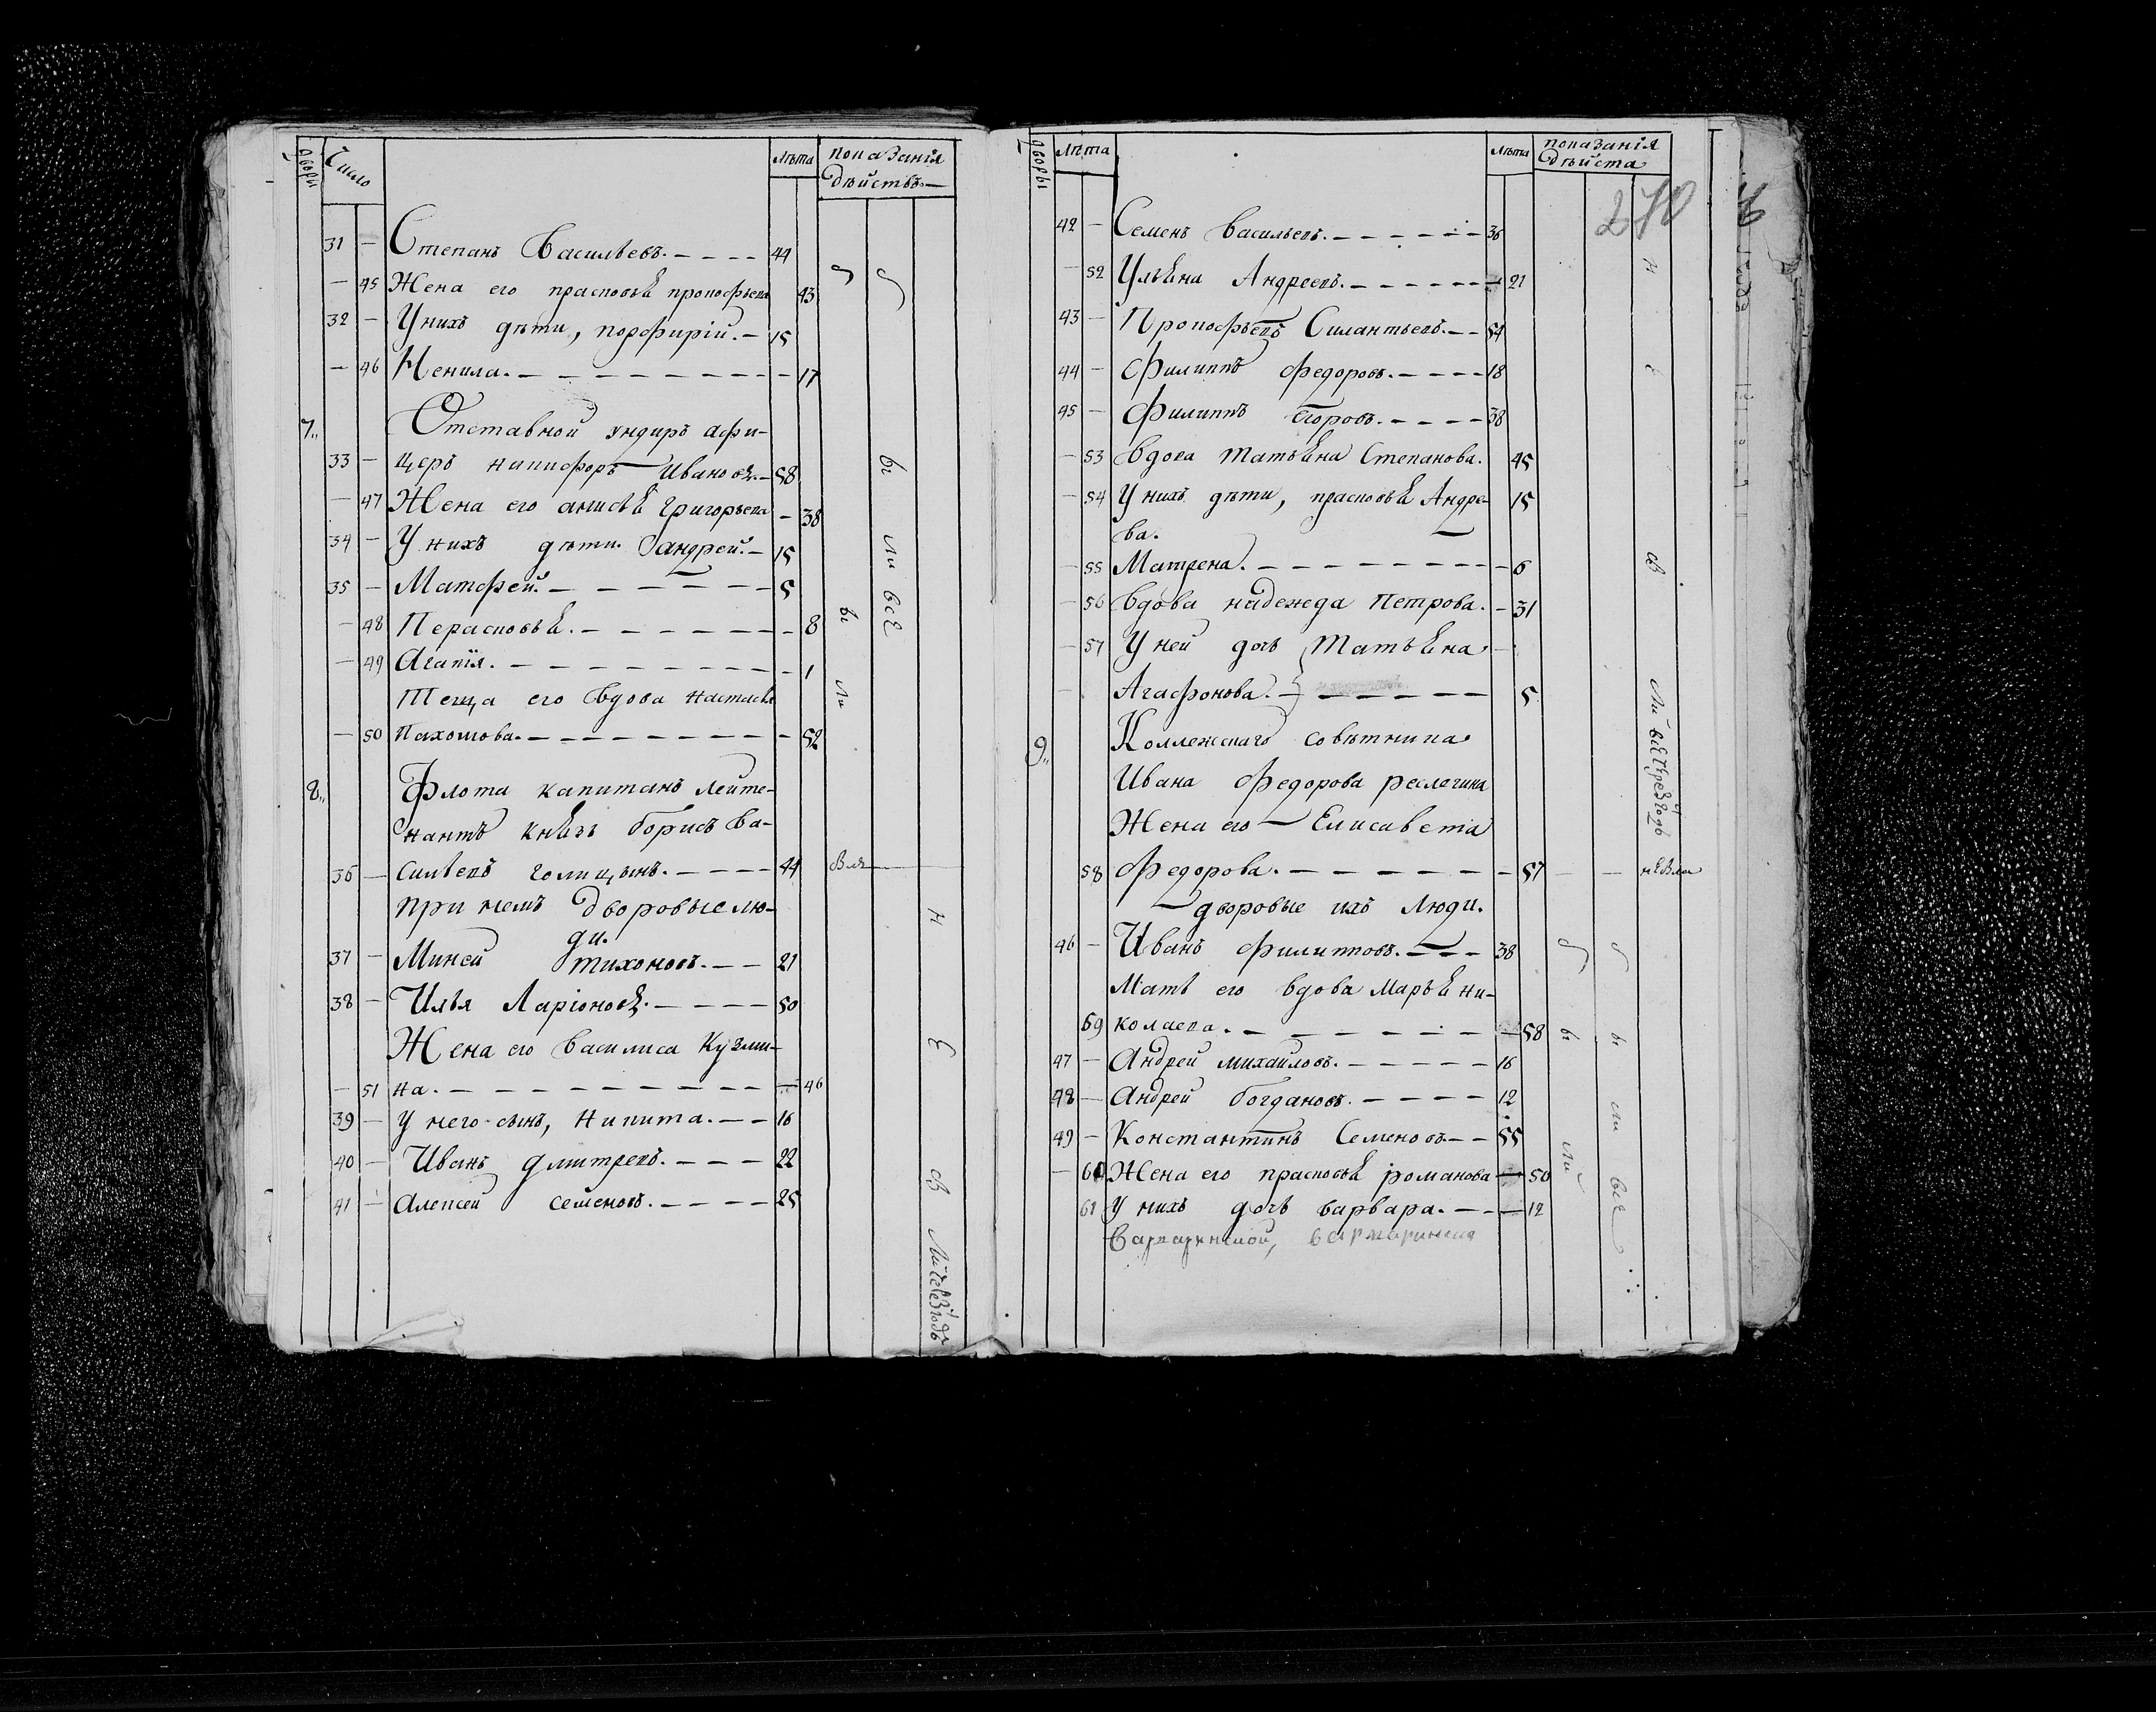 дворы Число лѣта показанія
дѣйствъ
31 – Степанъ Васильевъ. – – – – 44
– 45 Жена его прасковья прокофьева 43
32 – У нихъ дѣти, порфирій. – 15
– 46 Ненила. – – – – – – – – – – 17
7. Отставной ундиръ афи-
33 – церъ никифоръ Ивановъ. – 58
– 47 Жена его анисья григорьева – 38
34 – У нихъ дѣти андрей. – 15
35 – Матфей. – – – – – – 5
– 48 Перасковья. – – – – – – – 8
– 49 Агапія. – – – – – – – – – 1
Теща его вдова настасья
– 50 Пахомова. – – – – – – – – – 52
8. Флота капитанъ лейте-
нантъ князь борисъ ва-
36 – сильевъ голицынъ. – – – – 44 Были
при немъ дворовые лю-
ди.
37 – Миней тихоновъ. – – – 21
38 – Илья Ларіоновъ. – – – – 50
Жена его Василиса Кузми-
– 51 на. – – – – – – – – – – – 46
39 – у него сынъ, Никита. – – 16
40 – Иванъ дмитревъ. – – – – 22
41 – алексей семеновъ. – – – – 25
б
ы
ли
б
ы
ли
всѣ
н
е
дворы Лѣта лѣта показанія
дѣйста
270
42 – Семенъ Васильевъ. – – – – – – 36
– 52 Ульяна Андреевъ. – – – – – – – 21
43 – Прокофьевъ Силантьевъ. – – 54
44 – филиппъ федоровъ. – – – – 18
45 – филиппъ егоровъ. – – – – 38
– 53 вдова татьяна Степанова. 45
– 54 У нихъ дѣти, прасковья Андре- 15
ва.
– 55 Матрена. – – – – – – – – – – 6
– 56 вдова надежда Петрова. – 31
– 57 У ней дочь Татьяна
Агафонова. – – – – – – 5
9. Коллежскаго совѣтника
Ивана федорова
Жена его Елисавета
58 федорова. – – – – – – – 57 – –
– дворовые ихъ люди.
46 – Иванъ филипповъ. – – – 38
Мать его вдова марья ни-
59 колаева. – – – – – – – – 58
47 – Андрей михайловъ. – – – – – 16
48 – Андрей богдановъ. – – – – 12
49 – Константинъ Семеновъ – – 55
– 60 Жена его прасковья романова – 50
61 У нихъ дочь варвара. – – – 12
б
ы
ли
б
ы
ли
всѣ